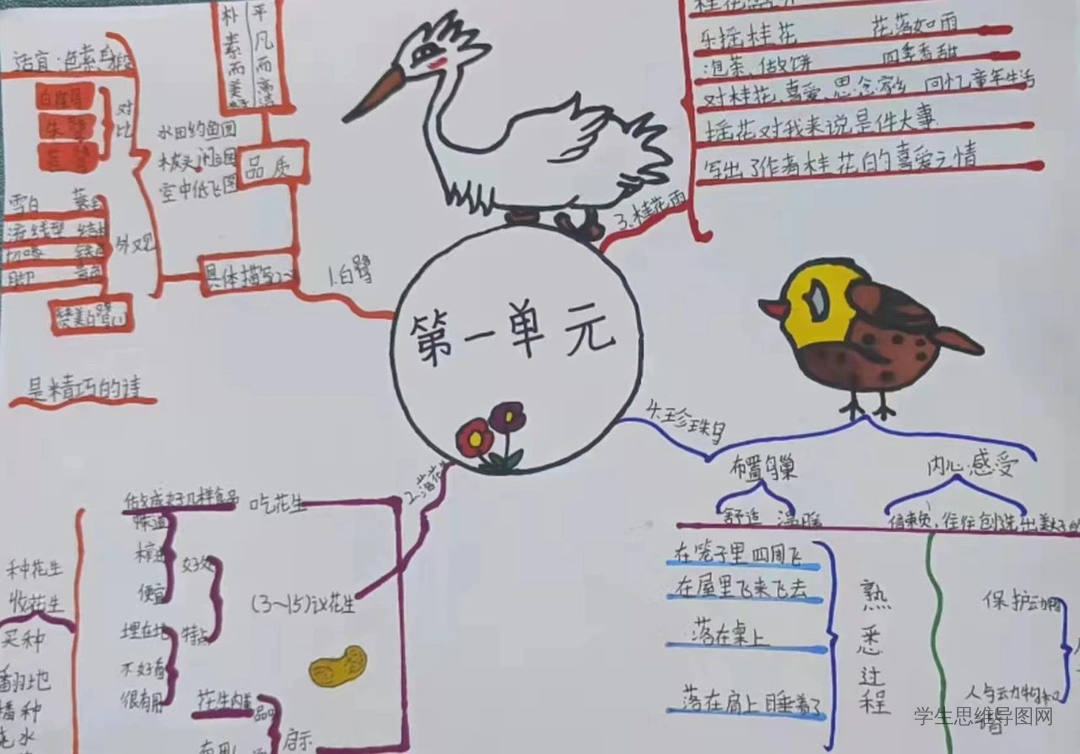 第一单元
1.白鹭
具体描写
品质
朴素而美
平凡而高洁
水田钓鱼图
空中低飞图
外观
对比
白鹤
朱鹭
苍鹭
雪白
流线型
脚
赞美白鹭
是精巧的诗
3.桂花雨
乐摇桂花 花落如雨
泡茶、做饼 四季香甜
对桂花、喜爱、思念家乡 回忆童年生活
摇花对我来说是件大事
写出了作者桂花的喜爱之情
4.珍珠鸟
布置鸟巢
舒适 温暖
内心感受
信赖,往往创造出美好的
熟悉过程
在笼子里四周飞
在屋里飞来飞去
落在桌上
落在肩上睡着了
保护动物
2.落花生
吃花生
做成好几样食品
(3~15)议花生
好处
味道
榨油
便宜
特点
埋在地
不好看
很有用
启示
种花生
收花生
买种
翻地
播种
浇水
学生思维导图网